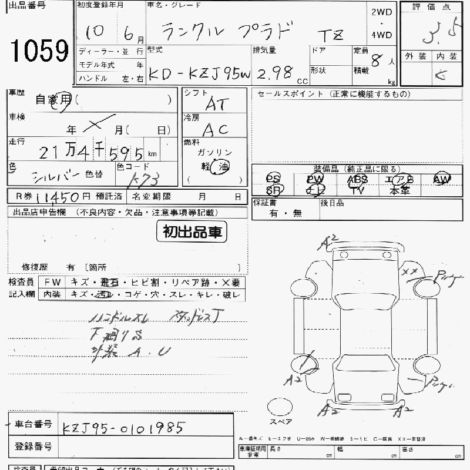 出品番号 1059
初度登録年月 10年 6月
車名・グレード ランクル プラド TZ
2WD 4WD
評価点 3.5
ディーラー・並行
モデル年式 年
ハンドル 左・右
型式 KD-KZJ95W
排気量 2.98 CC
ドア 形状
定員 8人
積載 kg
外装 内装 C
車歴 自家用( )
車検 年 月( 日)
走行 21万4千595km
色 シルバー 色替 色コード 1A73
シフト AT
冷房 AC
燃料 ガソリン 軽油( )
セールスポイント(正常に機能するもの)
装備品(純正品に限る)
PS PW ABS エアB AW
SR ナビ TV 本革
R券 11450円 預託済 名変期限 月 日
保証書 有・無 後日品
出品店申告欄(不良内容・欠品・注意事項等記載)
初出品車
修復歴 有[箇所
検査員記入欄
FW キズ・飛石・ヒビ割・リペア跡・X要
内装 キズ・汚れ・コゲ・穴・スレ・キレ・破レ
ハンドルスレ
下廻りS
外装 A.U
A2
XX
A2
A2
A2
スペア
車台番号 KZJ95-0101985
登録番号
長さ cm 幅 cm 高さ cm